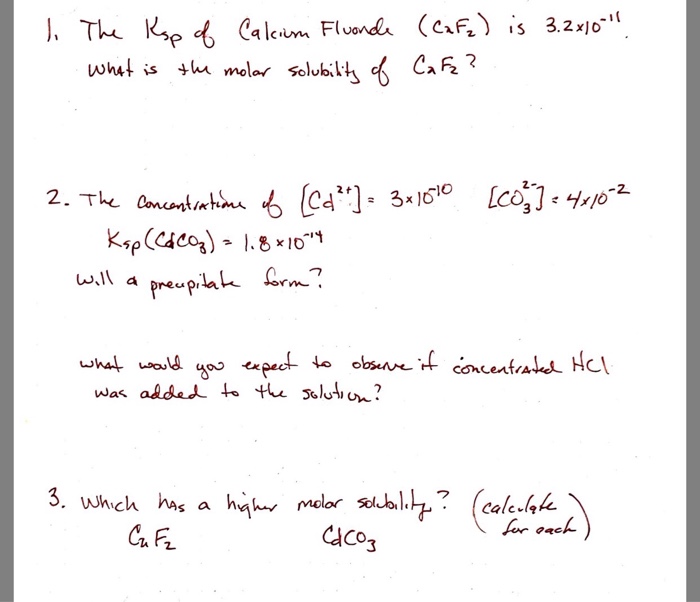 1. The Ksp of Calcium Fluoride (CaF₂) is 3.2×10⁻¹¹.
What is the molar solubility of CaF₂?
2. The Concentrations of [Cd²⁺] = 3×10⁻¹⁰ [CO₃²⁻] = 4×10⁻²
Ksp(CdCO₃) = 1.8×10⁻¹⁴
Will a precipitate form?
what would you expect to observe if concentrated HCl
was added to the solution?
3. Which has a higher molar solubility? (calculate
for each)
CaF₂ CdCO₃